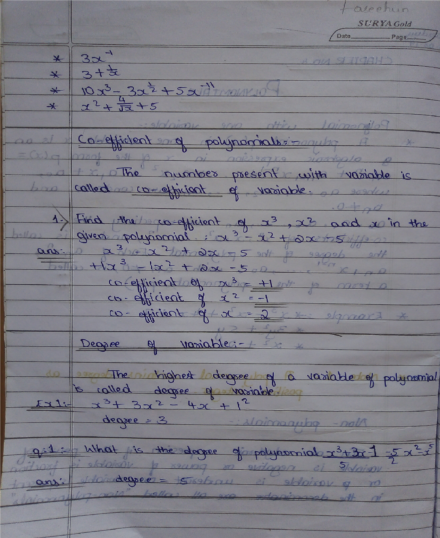 SURYA Gold
Date Page
* 3x⁻¹
* 3 + 1/x
* 10x³ - 3x^(3/2) + 5x⁻¹¹
* x² + 4/√x + 5
Co-efficient of polynomials:-
The number present with variable is
called co-efficient of variable.
1. Find the co-efficient of x³, x² and x in the
given polynomial : x³ - x² + 2x - 5
ans: x³ - x² + 2x - 5
+1x³ - 1x² + 2x - 5
co-efficient of x³ = +1
co-efficient of x² = -1
co-efficient of x = 2
Degree of variable:-
The highest degree of a variable of polynomial
is called degree of variable.
Ex1:- x³ + 3x² - 4x + 1²
degree = 3
q.1:- What is the degree of polynomial
ans: degree = 5